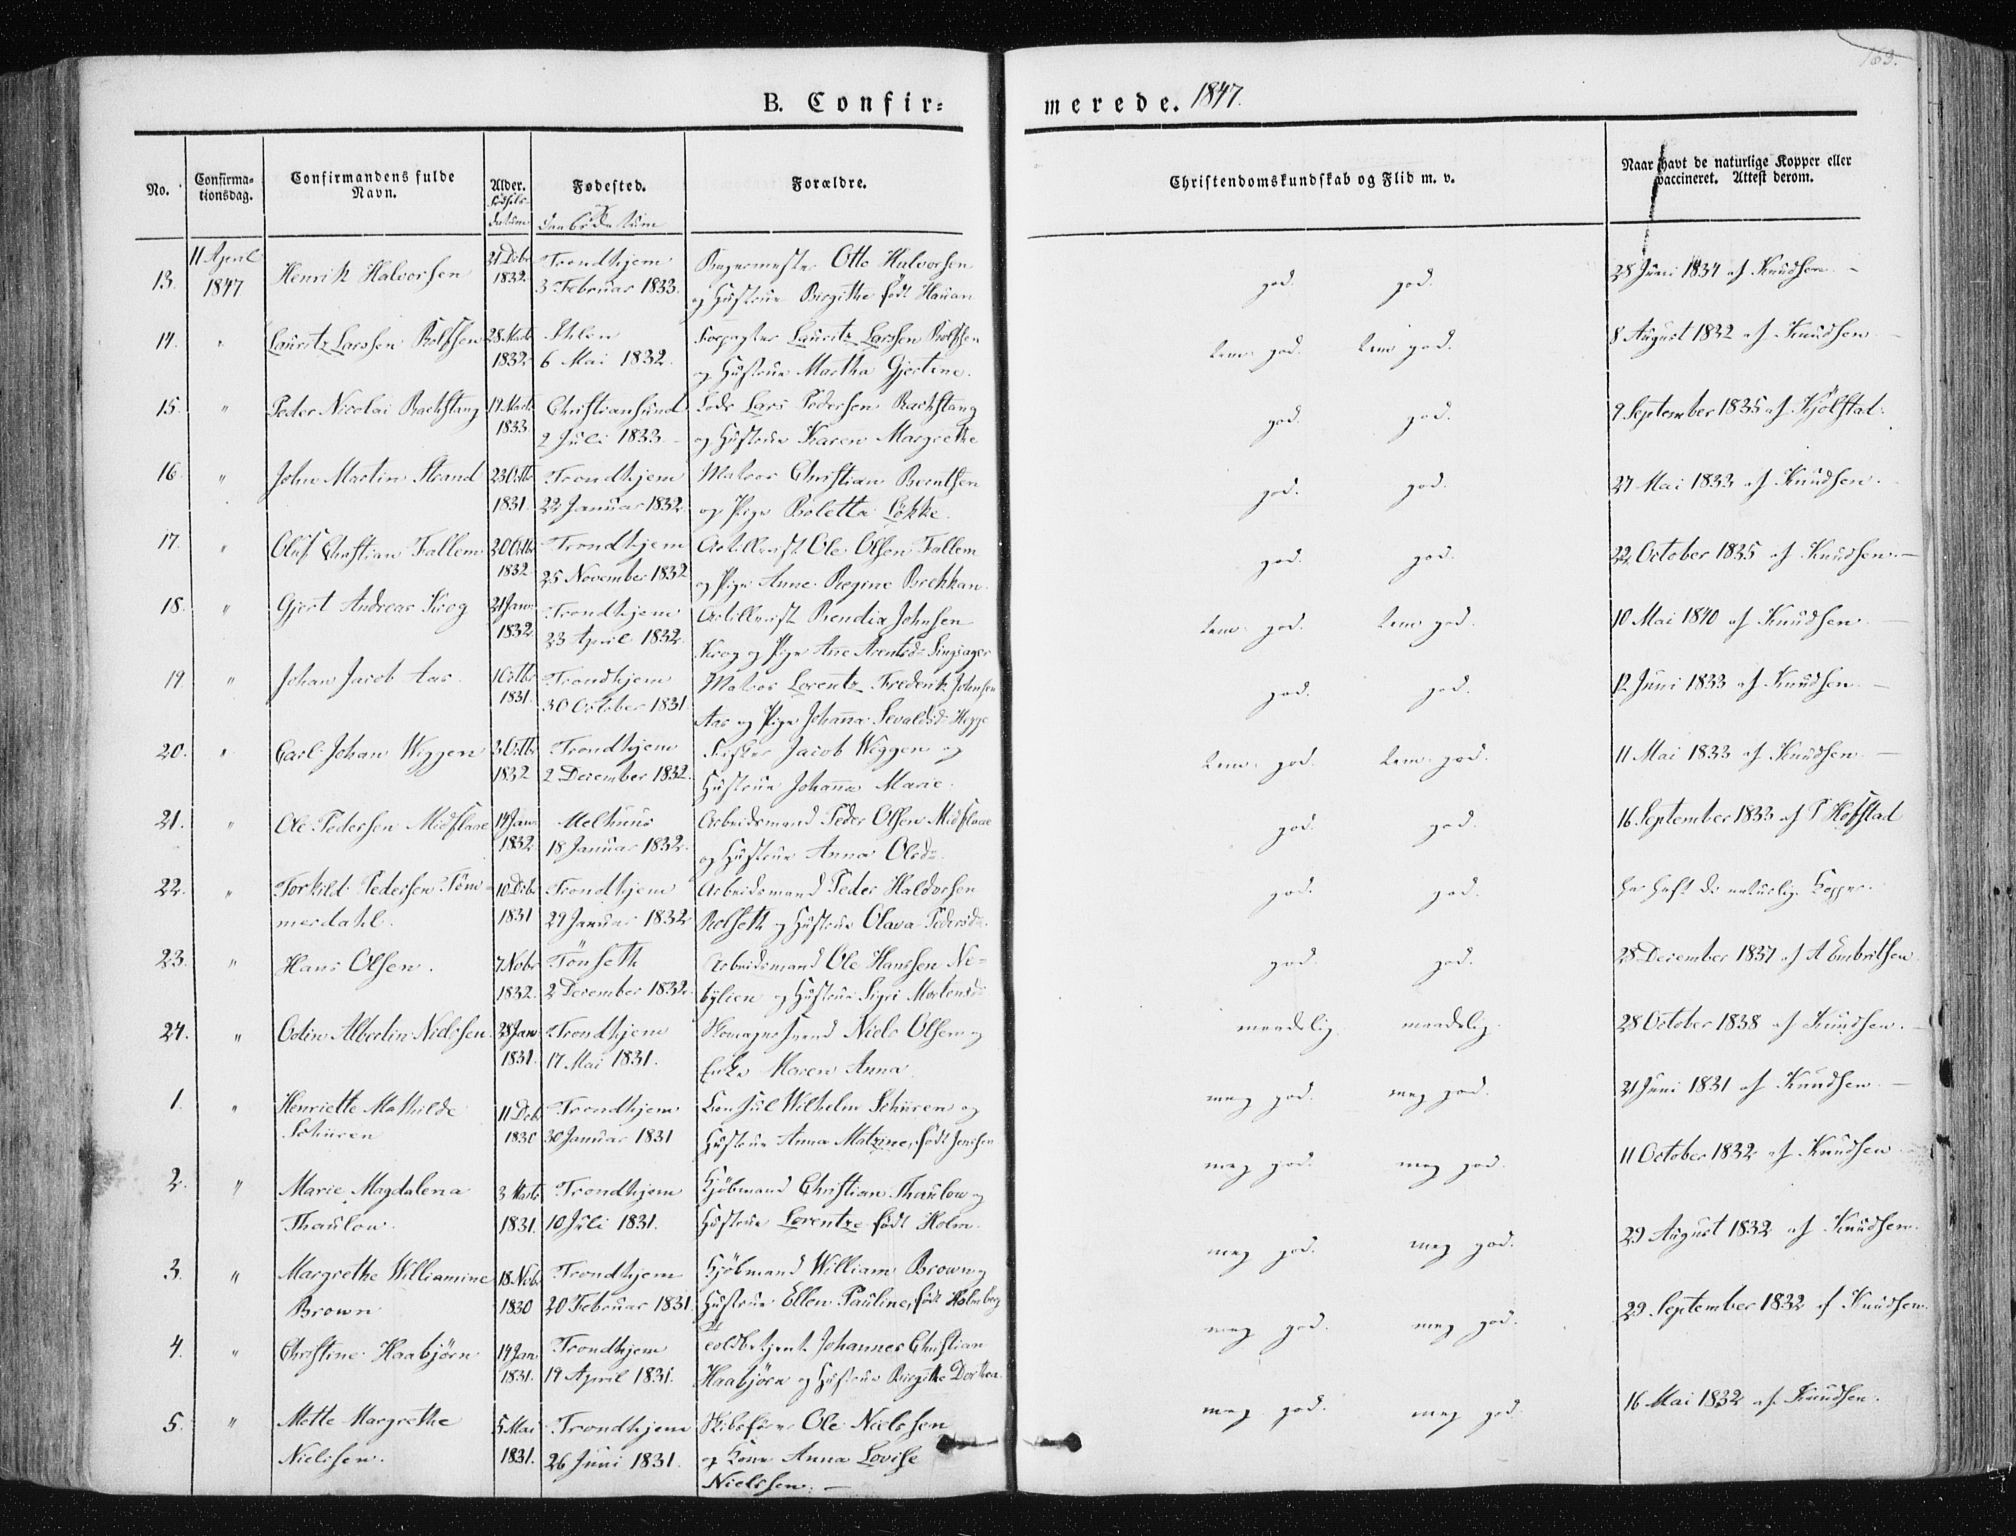 163.
B. Confir=
merede. 1847.
No.
Confirma=
tionsdag.
Confirmandens fulde
Navn.
Alder.
Fødsels
datum
Fødested.
Daabsdatum
Forældre.
Christendomskundskab og Flid m. v.
Naar havt de naturlige Kopper eller
vaccineret. Attest derom.
13. 11 April 1847 Henrik Halvorsen 31 Debr 1832 Trondhjem
3 Februar 1833.
Otto Halvorsen
og Hustrue Birgithe født Hauan
god. god.
28 Juni 1834 af Knudsen. –
14. " Lauritz Larssen Rolfsen 28 1832 Ihlen
6 Mai 1832.
Forpagter Lauritz Larssen Rolfsen
og Hustrue Martha Gjertine.
tem. god. tem god.
8 August 1832 af Knudsen –
15. " Peder Nicolai Backstang 19 Marts 1833 Christiansund
2 Juli 1833 –
Lods Lars Pedersen Backstang
og Hustrue Karen Margrethe
god. god.
9 September 1835 af Kjölstad.
16. " John Martin Strand 23 Octbr 1831. Trondhjem
22 Januar 1832
Matros Christian Berntsen
og Pige Boletta Lökke.
god. god.
27 Mai 1833 af Knudsen.
17. " Oluf Christian Fallem 20 Octbr 1832 Trondhjem
25 November 1832
Artillerist Ole Olsen Fallem
og Pige Anne Regine Brekkan.
god. god.
22 October 1835 af Knudsen. –
18. " Gjert Andreas Krog 21 Janr 1832 Trondhjem
23 April 1832
Artillerist Bendix Johnsen
Krog og Pige Ane Arentsd: Singsager
tem. god. tem god.
10 Mai 1840 af Knudsen –
19 " Johan Jacob Aas 1 Octbr 1831. Trondhjem
30 October 1831
Matros Lorentz Frederik Johnsen
Aas og Pige Johanna Sevaldsd: Hegge
god. god.
12 Juni 1833 af Knudsen –
20. " Carl Johan Wiggen 3 Octbr 1832 Trondhjem
2 December 1832.
Jacob Wiggen og
Hustrue Johanna Marie.
tem. god. tem. god.
11 Mai 1833 af Knudsen –
21. " Ole Pedersen Midflaae 14 Janr 1832. Melhuus
18 Januar 1832.
Arbeidsmand Peder Olsen Midflaae
og Hustrue Anna Olsd:
god. god.
16 September 1833 af P Hofstad
22. " Torkild Pedersen Töm=
merdahl.
10 Debr 1831 Trondhjem
29 Januar 1832
Arbeidsmand Peder Haldorsen
Rolseth og Hustrue Olava Pedersd:
god. god.
har haft de naturlige Kopper.
23. " Hans Olsen. 7 Nobr 1832. Tönseth
2 December 1832.
Arbeidsmand Ole Hanssen Ne=
bylien og Hustrue Sigri Mortensd:
god. god.
28 December 1837 af A Embritsen
24. " Odin Albertin Nielssen 28 Janr 1831. Trondhjem
17 Mai 1831.
Skomagersvend Niels Olsen og
Enke Maren Anna
maadelig. maadelig.
28 October 1838 af Knudsen.
1. " Henriette Mathilde
Schüren
11 Deb. 1830 Trondhjem
30 Januar 1831
Consul Wilhelm Schüren og
Hustrue Anna Matzine, født Jenssen
meg god. meg god.
21 Juni 1831 af Knudsen –
2. " Marie Magdalena
Thaulow.
3 Marts 1831. Trondhjem
10 Juli 1831.
Kjöbmand Christian Thaulow og
Hustrue Lorentze født Holm.
meg god. meg god.
11 October 1832 af Knudsen
3. " Margrethe Williamine
Brown
18 Nobr 1830 Trondhjem
20 Februar 1831
Kjöbmand William Brown og
Hustrue Ellen Pauline, født Holmberg
meg god. meg god.
29 August 1832 af Knudsen.
4. " Christine Haabjörn 14 Jan 1831. Trondhjem
19 April 1831.
Toldbetjent Johannes Christian
Haabjörn og Hustrue Birgithe Dorthea.
meg god. meg god.
29 September 1832 af Knudsen
5. " Mette Margrethe
Nielssen.
5 Mai 1831. Trondhjem
26 Juni 1831.
Skibsförer Ole Nielssen
og Kone Anna Lovise
Nielssen. –
meg god. meg god.
16 Mai 1832 af Knudsen.